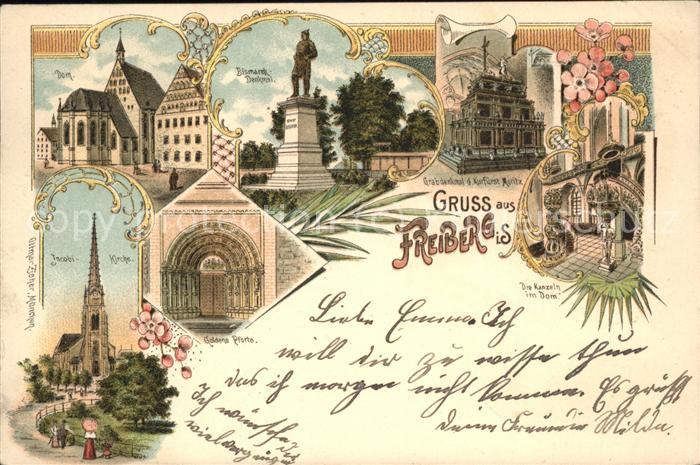 Dom.
Bismarck-
Denkmal.
Grabdenkmal d. Kurfürst Moritz
GRUSS aus
FREIBERG i.S
Jacobi-Kirche.
Goldene Pforte.
Die Kanzeln
im Dom.
Ottmar Zieher, München.
Liebe Emma. Ich
will dir zu wisse thun
das ich morgen nicht komme. Es grüßt
deine Freundin Milda.
Ich wünsche
viel vergnügen